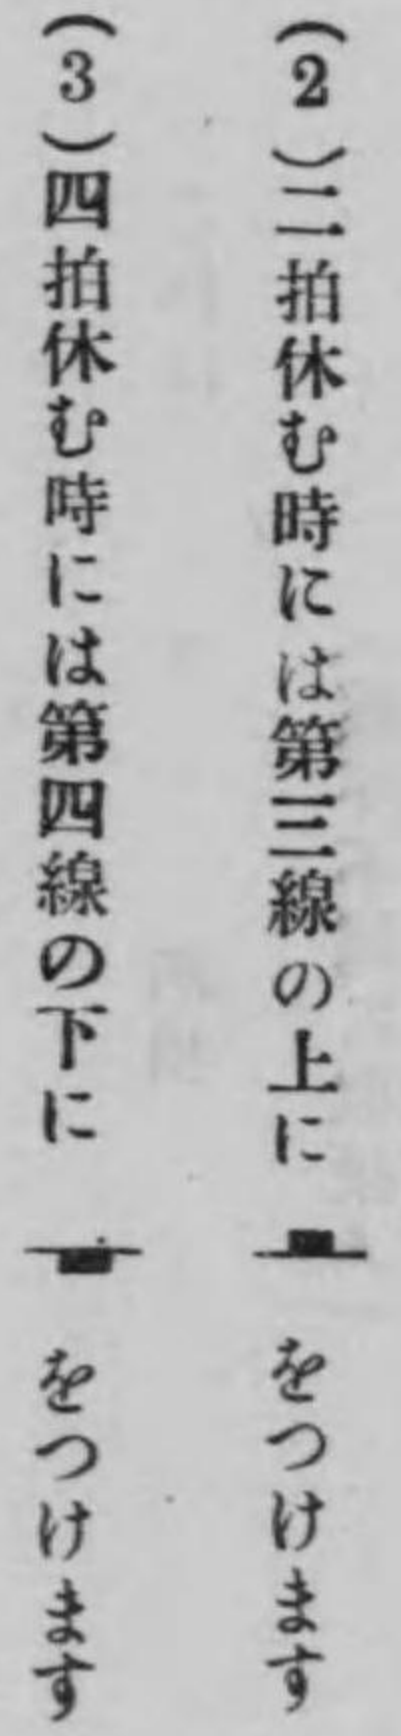 (2)二拍休む時には第三線の上に𝄼をつけます
(3)四拍休む時には第四線の下に𝄻をつけます